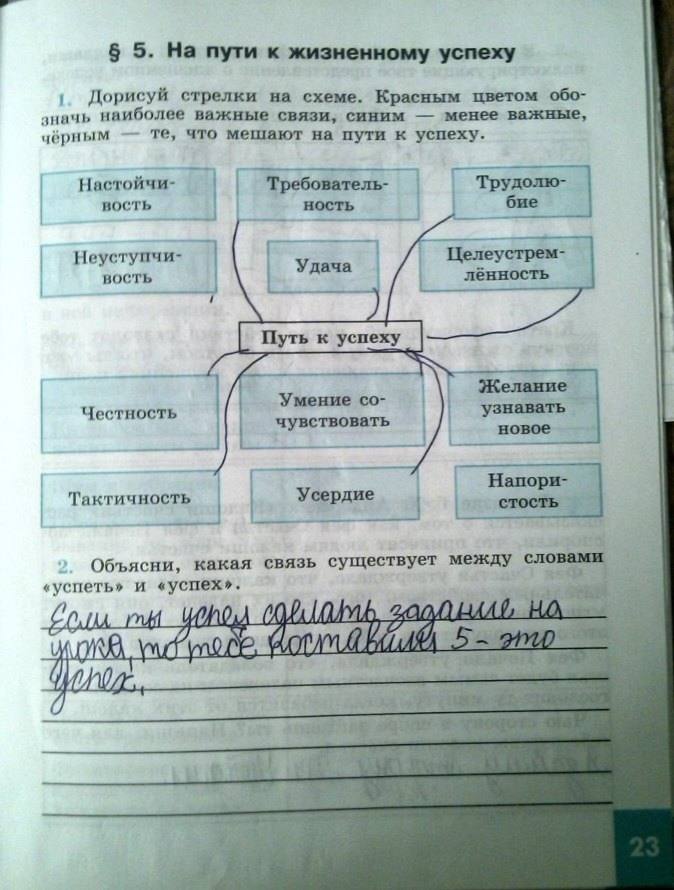 § 5. На пути к жизненному успеху
1. Дорисуй стрелки на схеме. Красным цветом обо-
значь наиболее важные связи, синим — менее важные,
чёрным — те, что мешают на пути к успеху.
Настойчи-
вость
Требователь-
ность
Трудолю-
бие
Неуступчи-
вость
Удача
Целеустрем-
лённость
Путь к успеху
Честность
Умение со-
чувствовать
Желание
узнавать
новое
Тактичность
Усердие
Напори-
стость
2. Объясни, какая связь существует между словами
«успеть» и «успех».
Если ты успел сделать задание на
урока, то тебе поставили 5 - это
успех.
23